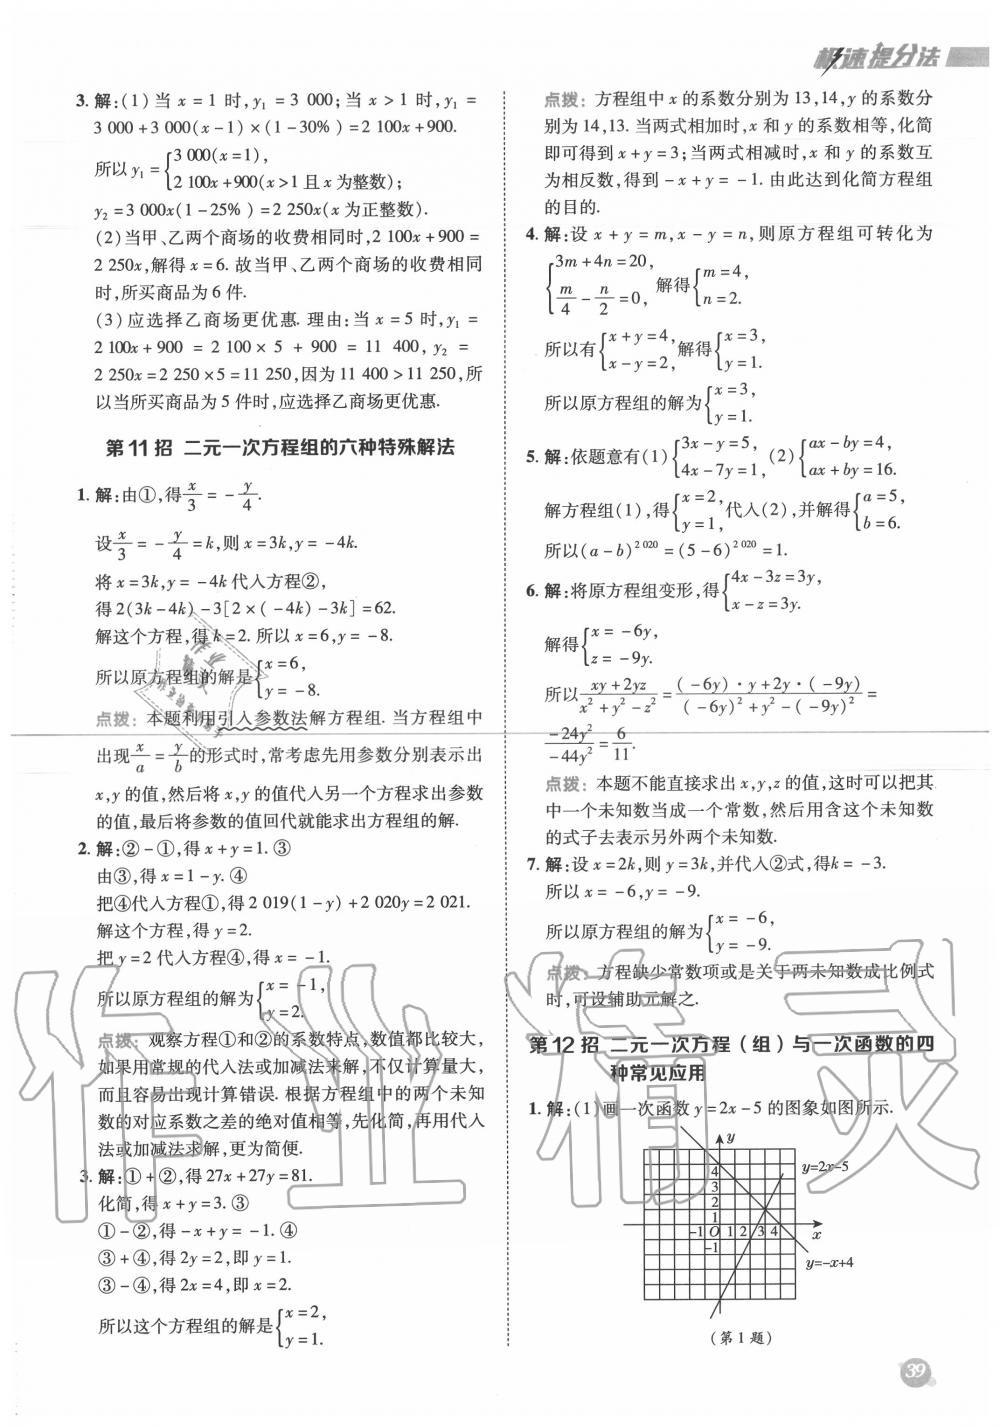 极速提分法
3. 解:(1)当 x = 1 时,y₁ = 3 000;当 x > 1 时,y₁ =
3 000 + 3 000(x - 1) × (1 - 30% ) = 2 100x + 900.
所以 y₁ = { 3 000(x = 1),
2 100x + 900(x > 1 且 x 为整数);
y₂ = 3 000x(1 - 25% ) = 2 250x(x 为正整数).
(2)当甲、乙两个商场的收费相同时,2 100x + 900 =
2 250x,解得 x = 6. 故当甲、乙两个商场的收费相同
时,所买商品为 6 件.
(3)应选择乙商场更优惠. 理由:当 x = 5 时,y₁ =
2 100x + 900 = 2 100 × 5 + 900 = 11 400, y₂ =
2 250x = 2 250 × 5 = 11 250,因为 11 400 > 11 250,所
以当所买商品为 5 件时,应选择乙商场更优惠.
第 11 招 二元一次方程组的六种特殊解法
1. 解:由①,得 x/3 = - y/4.
设 x/3 = - y/4 = k,则 x = 3k,y = - 4k.
将 x = 3k,y = - 4k 代入方程②,
得 2(3k - 4k) - 3[2 × ( - 4k) - 3k] = 62.
解这个方程,得 k = 2. 所以 x = 6,y = - 8.
所以原方程组的解是 { x = 6,
y = - 8.
点拨: 本题利用引入参数法解方程组. 当方程组中
出现 x/a = y/b 的形式时,常考虑先用参数分别表示出
x,y 的值,然后将 x,y 的值代入另一个方程求出参数
的值,最后将参数的值回代就能求出方程组的解.
2. 解:② - ①,得 x + y = 1. ③
由③,得 x = 1 - y. ④
把④代入方程①,得 2 019(1 - y) + 2 020y = 2 021.
解这个方程,得 y = 2.
把 y = 2 代入方程④,得 x = - 1.
所以原方程组的解为 { x = - 1,
y = 2.
点拨: 观察方程①和②的系数特点,数值都比较大,
如果用常规的代入法或加减法来解,不仅计算量大,
而且容易出现计算错误. 根据方程组中的两个未知
数的对应系数之差的绝对值相等,先化简,再用代入
法或加减法求解,更为简便.
3. 解:① + ②,得 27x + 27y = 81.
化简,得 x + y = 3. ③
① - ②,得 - x + y = - 1. ④
③ + ④,得 2y = 2,即 y = 1.
③ - ④,得 2x = 4,即 x = 2.
所以这个方程组的解是 { x = 2,
y = 1.
点拨: 方程组中 x 的系数分别为 13,14,y 的系数分
别为 14,13. 当两式相加时,x 和 y 的系数相等,化简
即可得到 x + y = 3;当两式相减时,x 和 y 的系数互
为相反数,得到 - x + y = - 1. 由此达到化简方程组
的目的.
4. 解:设 x + y = m,x - y = n,则原方程组可转化为
{ 3m + 4n = 20,
m/4 - n/2 = 0, 解得 { m = 4,
n = 2.
所以有 { x + y = 4,
x - y = 2, 解得 { x = 3,
y = 1.
所以原方程组的解为 { x = 3,
y = 1.
5. 解:依题意有(1) { 3x - y = 5,
4x - 7y = 1, (2) { ax - by = 4,
ax + by = 16.
解方程组(1),得 { x = 2,
y = 1, 代入(2),并解得 { a = 5,
b = 6.
所以(a - b)²⁰²⁰ = (5 - 6)²⁰²⁰ = 1.
6. 解:将原方程组变形,得 { 4x - 3z = 3y,
x - z = 3y.
解得 { x = - 6y,
z = - 9y.
所以 (xy + 2yz)/(x² + y² - z²) = (( - 6y) · y + 2y · ( - 9y))/(( - 6y)² + y² - ( - 9y)²) =
(- 24y²)/(- 44y²) = 6/11.
点拨: 本题不能直接求出 x,y,z 的值,这时可以把其
中一个未知数当成一个常数,然后用含这个未知数
的式子去表示另外两个未知数.
7. 解:设 x = 2k,则 y = 3k,并代入②式,得k = - 3.
所以 x = - 6,y = - 9.
所以原方程组的解为 { x = - 6,
y = - 9.
点拨: 方程缺少常数项或是关于两未知数成比例式
时,可设辅助元解之.
第 12 招 二元一次方程（组）与一次函数的四
种常见应用
1. 解:(1)画一次函数 y = 2x - 5 的图象如图所示.
y
y=2x-5
4
3
2
1
-1 O 1 2 3 4 x
-1
y=-x+4
(第 1 题)
39
作业精灵